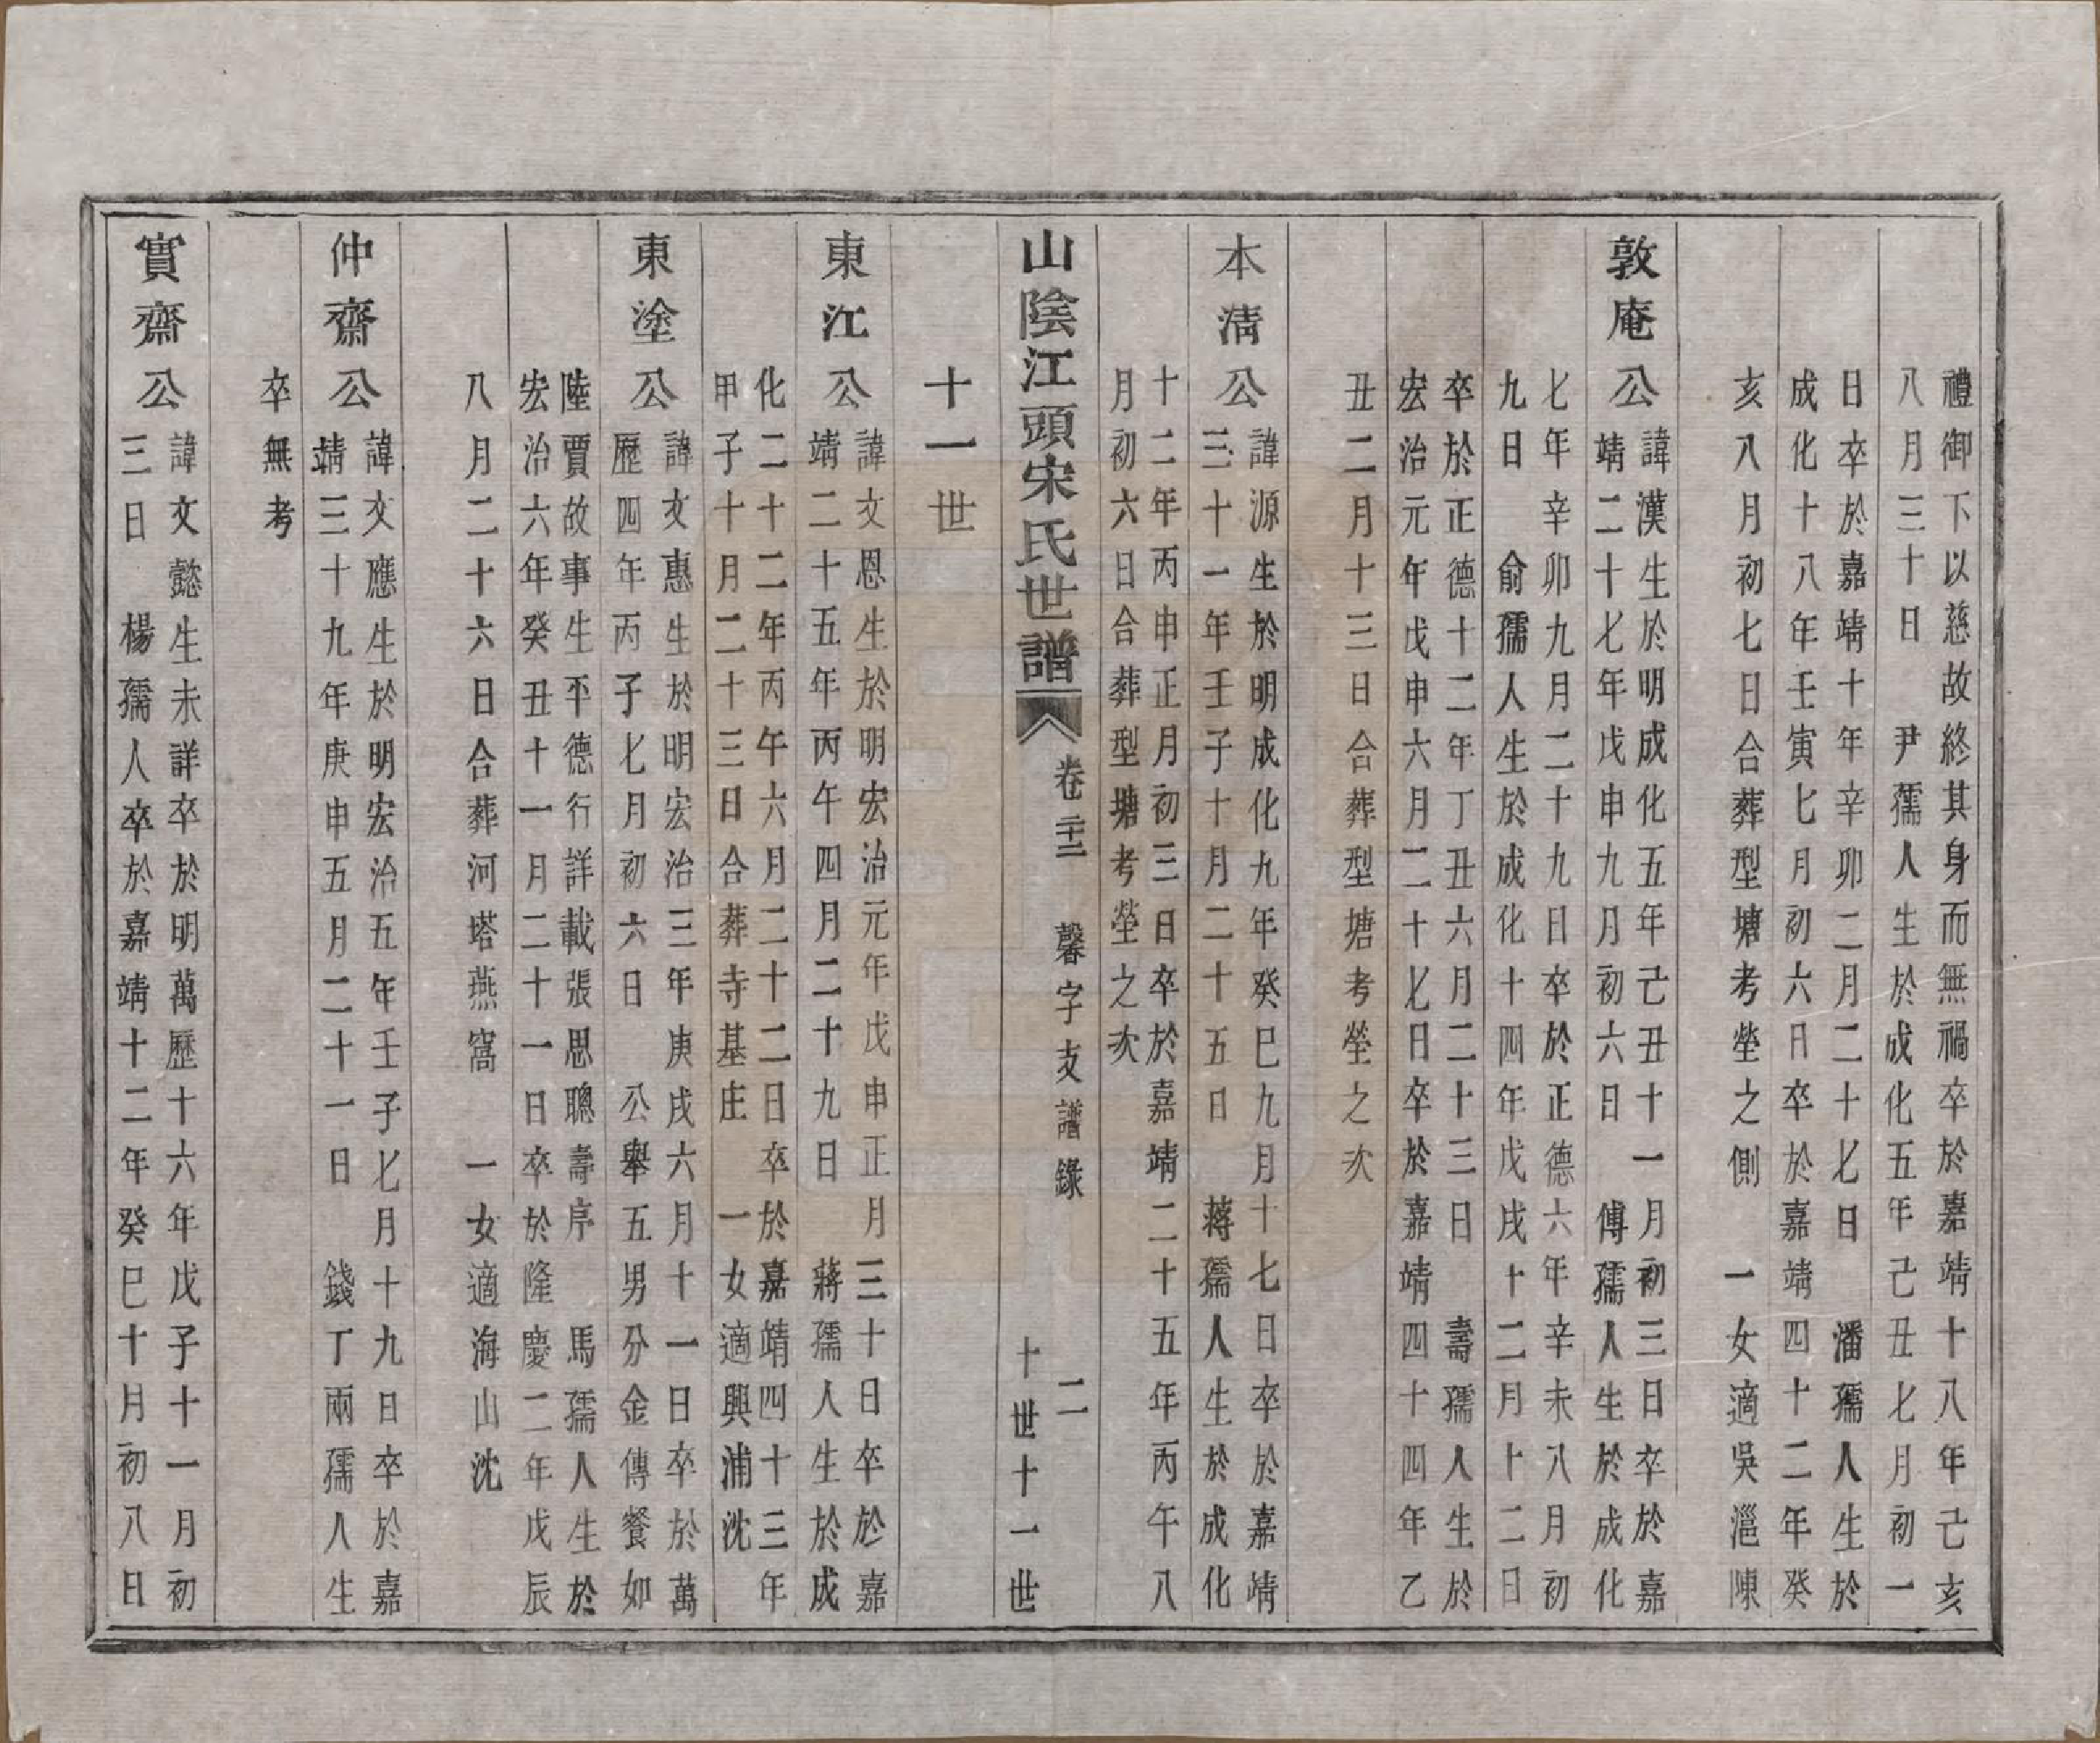 禮御下以慈故終其身而無禍卒於嘉靖十八年己亥
八月三十日　尹孺人生於成化五年己丑七月初一
日卒於嘉靖十年辛卯二月二十七日　潘孺人生於
成化十八年壬寅七月初六日卒於嘉靖四十二年癸
亥八月初七日合葬型塘考塋之側　一女適吳濄陳
敦庵公
諱漢生於明成化五年己丑十一月初三日卒於嘉
靖二十七年戊申九月初六日　傅孺人生於成化
七年辛卯九月二十九日卒於正德六年辛未八月初
九日　俞孺人生於成化十四年戊戌十二月十二日
卒於正德十二年丁丑六月二十三日　壽孺人生於
宏治元年戊申六月二十七日卒於嘉靖四十四年乙
丑二月十三日合葬型塘考塋之次
本清公
諱源生於明成化九年癸巳九月十七日卒於嘉靖
三十一年壬子十月二十五日　蔣孺人生於成化
十二年丙申正月初三日卒於嘉靖二十五年丙午八
月初六日合葬型塘考塋之次
山陰江頭宋氏世譜
卷二十二　馨字支譜錄　二
十世十一世
十一世
東江公
諱文恩生於明宏治元年戊申正月三十日卒於嘉
靖二十五年丙午四月二十九日　蔣孺人生於成
化二十二年丙午六月二十二日卒於嘉靖四十三年
甲子十月二十三日合葬寺基庄　一女適興浦沈
東塗公
諱文惠生於明宏治三年庚戌六月十一日卒於萬
歷四年丙子七月初六日　公舉五男分金傳餐如
陸賈故事生平德行詳載張思聰壽序　馬孺人生於
宏治六年癸丑十一月二十一日卒於隆慶二年戊辰
八月二十六日合葬河塔燕窩　一女適海山沈
仲齋公
諱文應生於明宏治五年壬子七月十九日卒於嘉
靖三十九年庚申五月二十一日　錢丁兩孺人生
卒無考
實齋公
諱文懿生未詳卒於明萬歷十六年戊子十一月初
三日　楊孺人卒於嘉靖十二年癸巳十月初八日